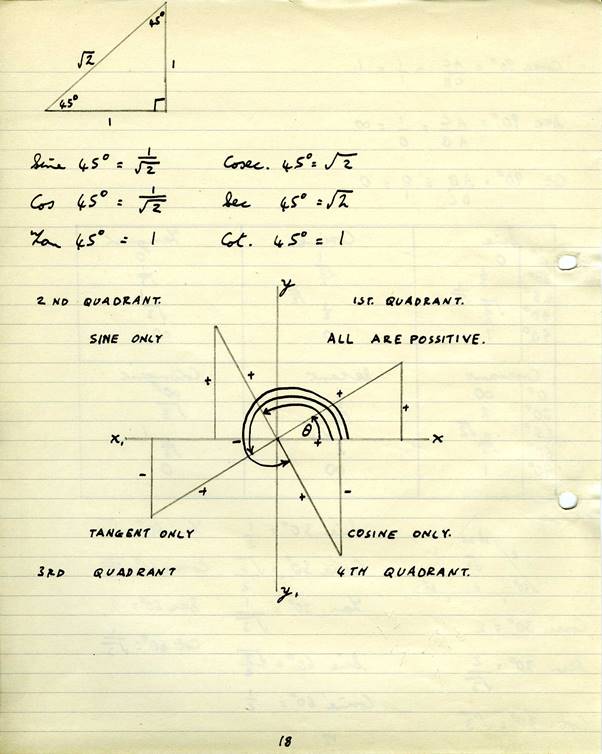 45°
√2
1
45°
1
Sine 45° = 1/√2 Cosec. 45° = √2
Cos 45° = 1/√2 Sec 45° = √2
Tan 45° = 1 Cot. 45° = 1
y
2 ND QUADRANT. 1ST. QUADRANT.
SINE ONLY ALL ARE POSSITIVE.
+ + +
+
θ
x, - + x
- + + -
TANGENT ONLY COSINE ONLY.
3RD QUADRANT 4TH QUADRANT.
y,
18